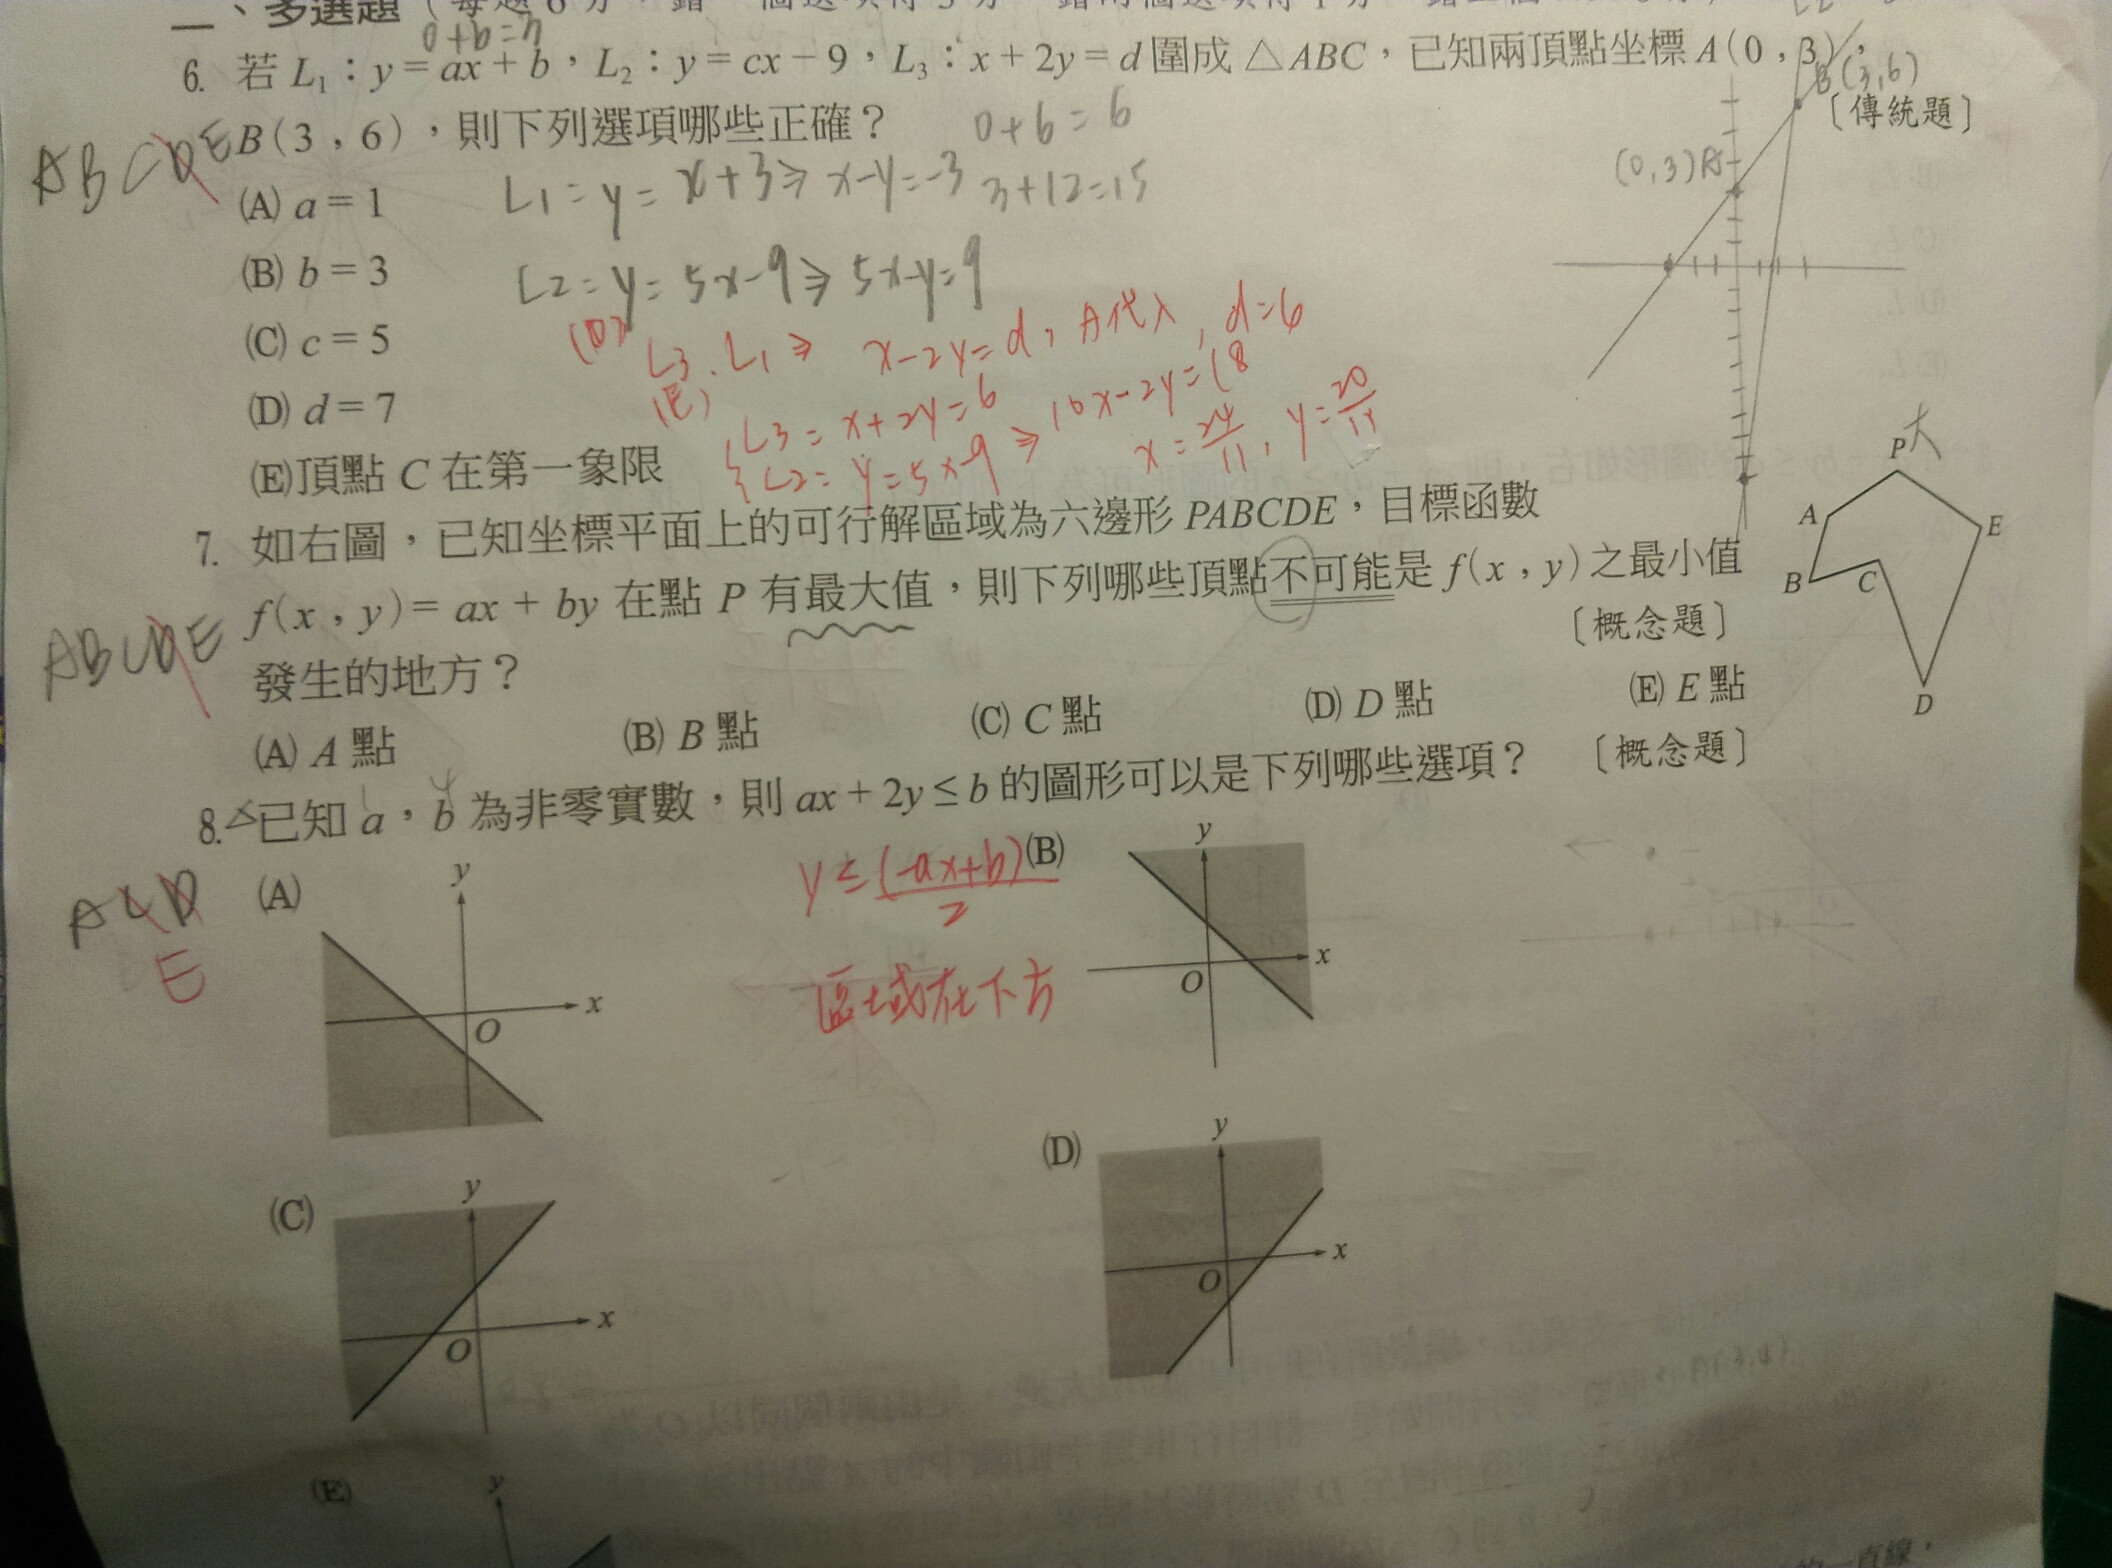 二、多選題
0+b=
6. 若 L₁:y=ax+b,L₂:y=cx-9,L₃:x+2y=d 圍成 △ABC,已知兩頂點坐標 A(0,3),
B(3,6),則下列選項哪些正確? 〔傳統題〕
B(3,6)
0+6=6
(0,3)A
ABCDE
(A) a=1
L1=y=x+3⇒x-y=-3
3+12=15
(B) b=3
L2=y=5x-9⇒5x-y=9
(C) c=5
(D) L3.L1⇒ x-2y=d,A代入,d=6
(D) d=7
(E)
{L3=x+2y=6
L2=y=5x-9 ⇒10x-2y=18
x=24/11,y=20/11
(E)頂點 C 在第一象限
7. 如右圖,已知坐標平面上的可行解區域為六邊形 PABCDE,目標函數
f(x,y)=ax+by 在點 P 有最大值,則下列哪些頂點不可能是 f(x,y)之最小值
發生的地方? 〔概念題〕
ABCDE
(A) A 點 (B) B 點 (C) C 點 (D) D 點 (E) E 點
P大
A
E
B
C
D
8. 已知 a,b 為非零實數,則 ax+2y≤b 的圖形可以是下列哪些選項? 〔概念題〕
ACD
E
y≤(-ax+b)/2
區域在下方
(A)
y
x
O
(B)
y
x
O
(C)
y
x
O
(D)
y
x
O
(E)
y